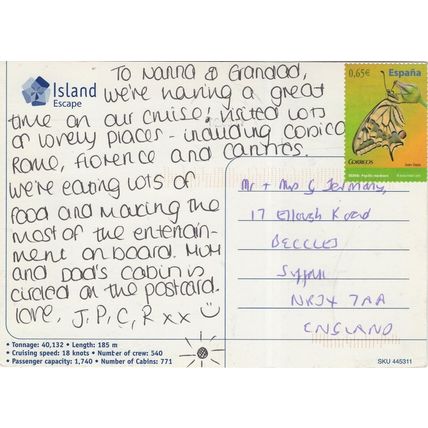 Island
Escape
To Nanna & Grandad,
we're having a great
time on our cruise! visited lots
of lovely places - including
Rome, Florence and
we're eating lots of
food and making the
most of the entertain-
ment on board. Mum
and Dad's cabin is
circled on the postcard.
love, J, P, C, R xx
0,65€ España
CORREOS
Mr + Mrs G
17 Ellough Road
BECCLES
Suffolk
7AA
ENGLAND
• Tonnage: 40,132 • Length: 185 m
• Cruising speed: 18 knots • Number of crew: 540
• Passenger capacity: 1,740 • Number of Cabins: 771
SKU 445311